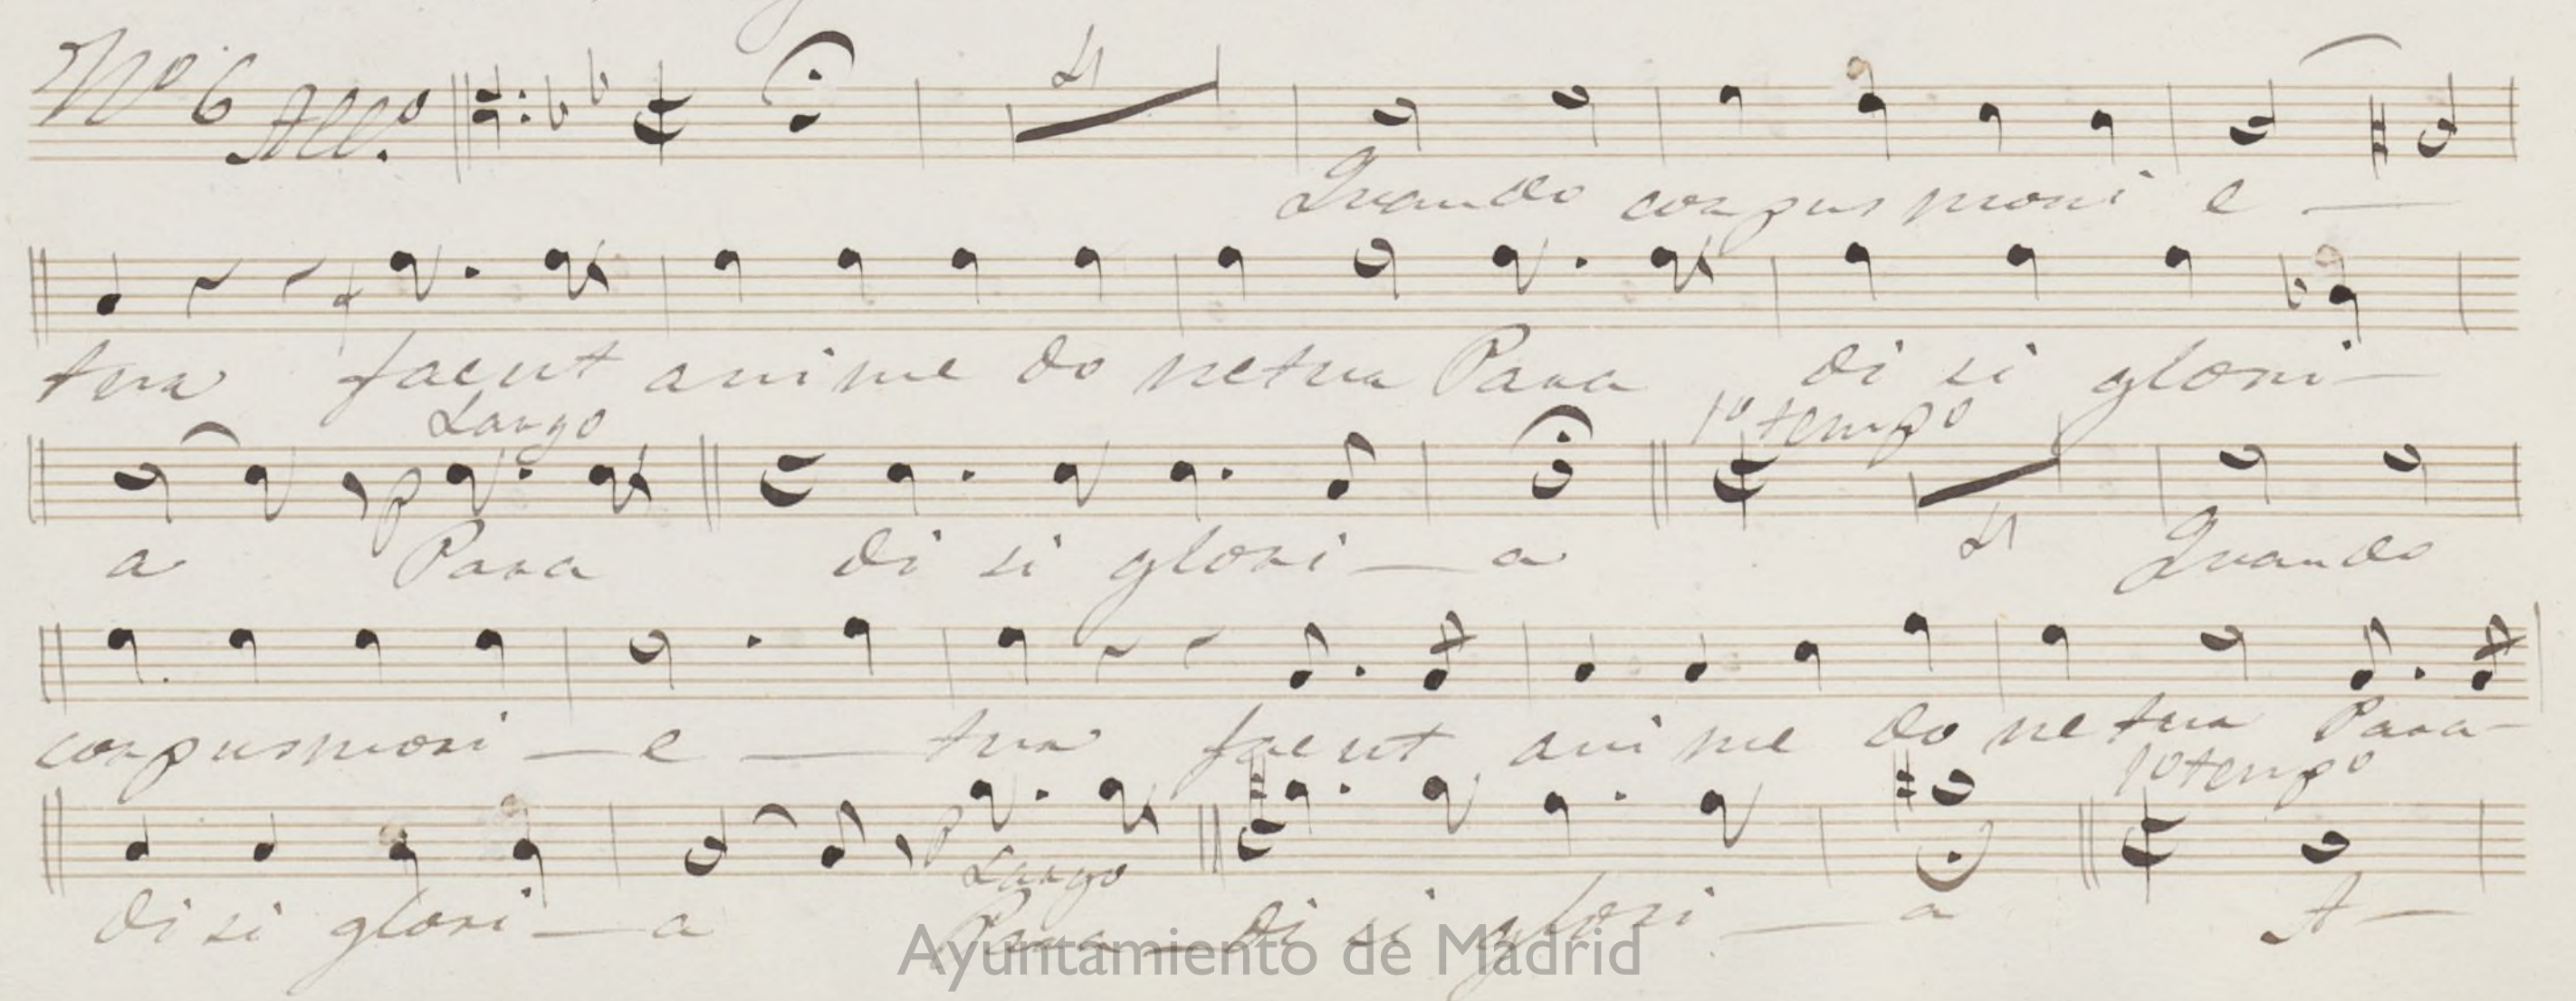 Nº 6 All.º 4
Quando corpus mori e —
tur f facut anime do netur Para di si glori —
Largo 1º tempo
p 4
a Para di si glori — a Quando
corpus mori — e — tur facut anime do ne tur Para —
1º tempo
p Largo
di si glori — a Para — di si glori — a A —
Ayuntamiento de Madrid